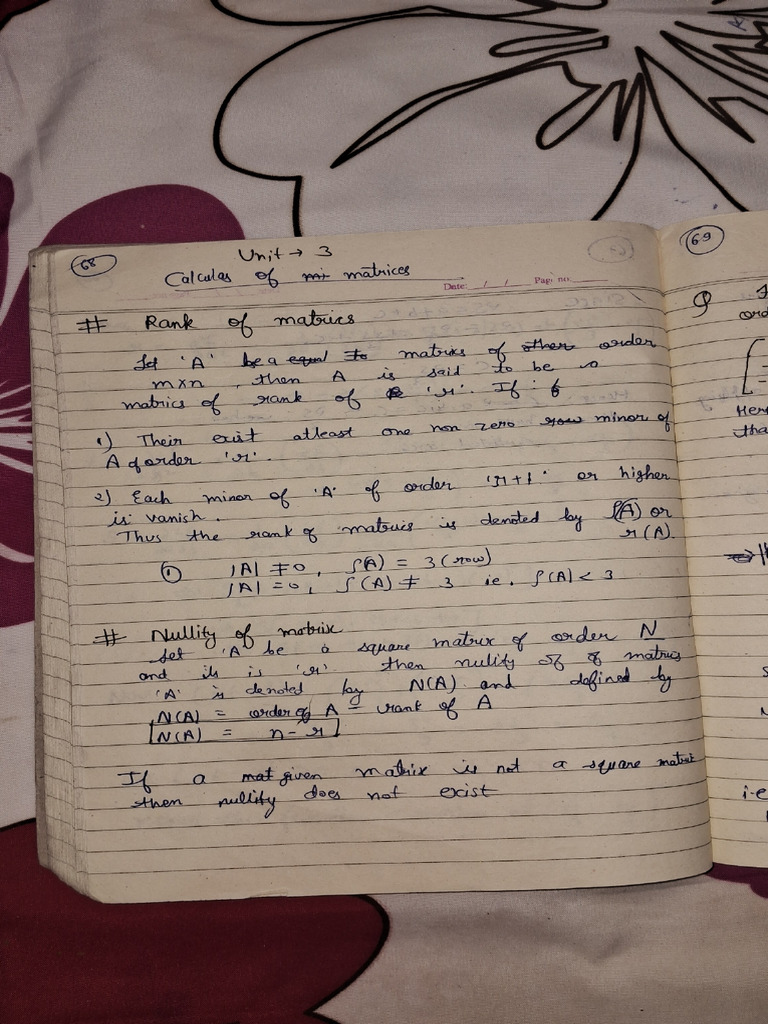 68
Unit → 3
Calculas of matrices
Date: / / Page no:
# Rank of matrics
Let 'A' be a equal to matrics of other order
m×n, then A is said to be
matrics of rank of 'r'. If :
1) Their exit atleast one non zero row minor of
A of order 'r'.
2) Each minor of 'A' of order 'r+1' or higher
is vanish.
Thus the rank of matrics is denoted by ρ(A) or
r(A).
① |A| ≠ 0, ρ(A) = 3 (row)
|A| = 0, ρ(A) ≠ 3 ie. ρ(A) < 3
# Nullity of matrix
Let 'A be a square matrix of order N
and its is 'r'. then nullity of of matrics
'A' is denoted by N(A) and defined by
N(A) = order of A - rank of A
N(A) = n - r
If a mat given matrix is not a square matrix
then nullity does not exist
69
Q
ord
Her
tha
i.e